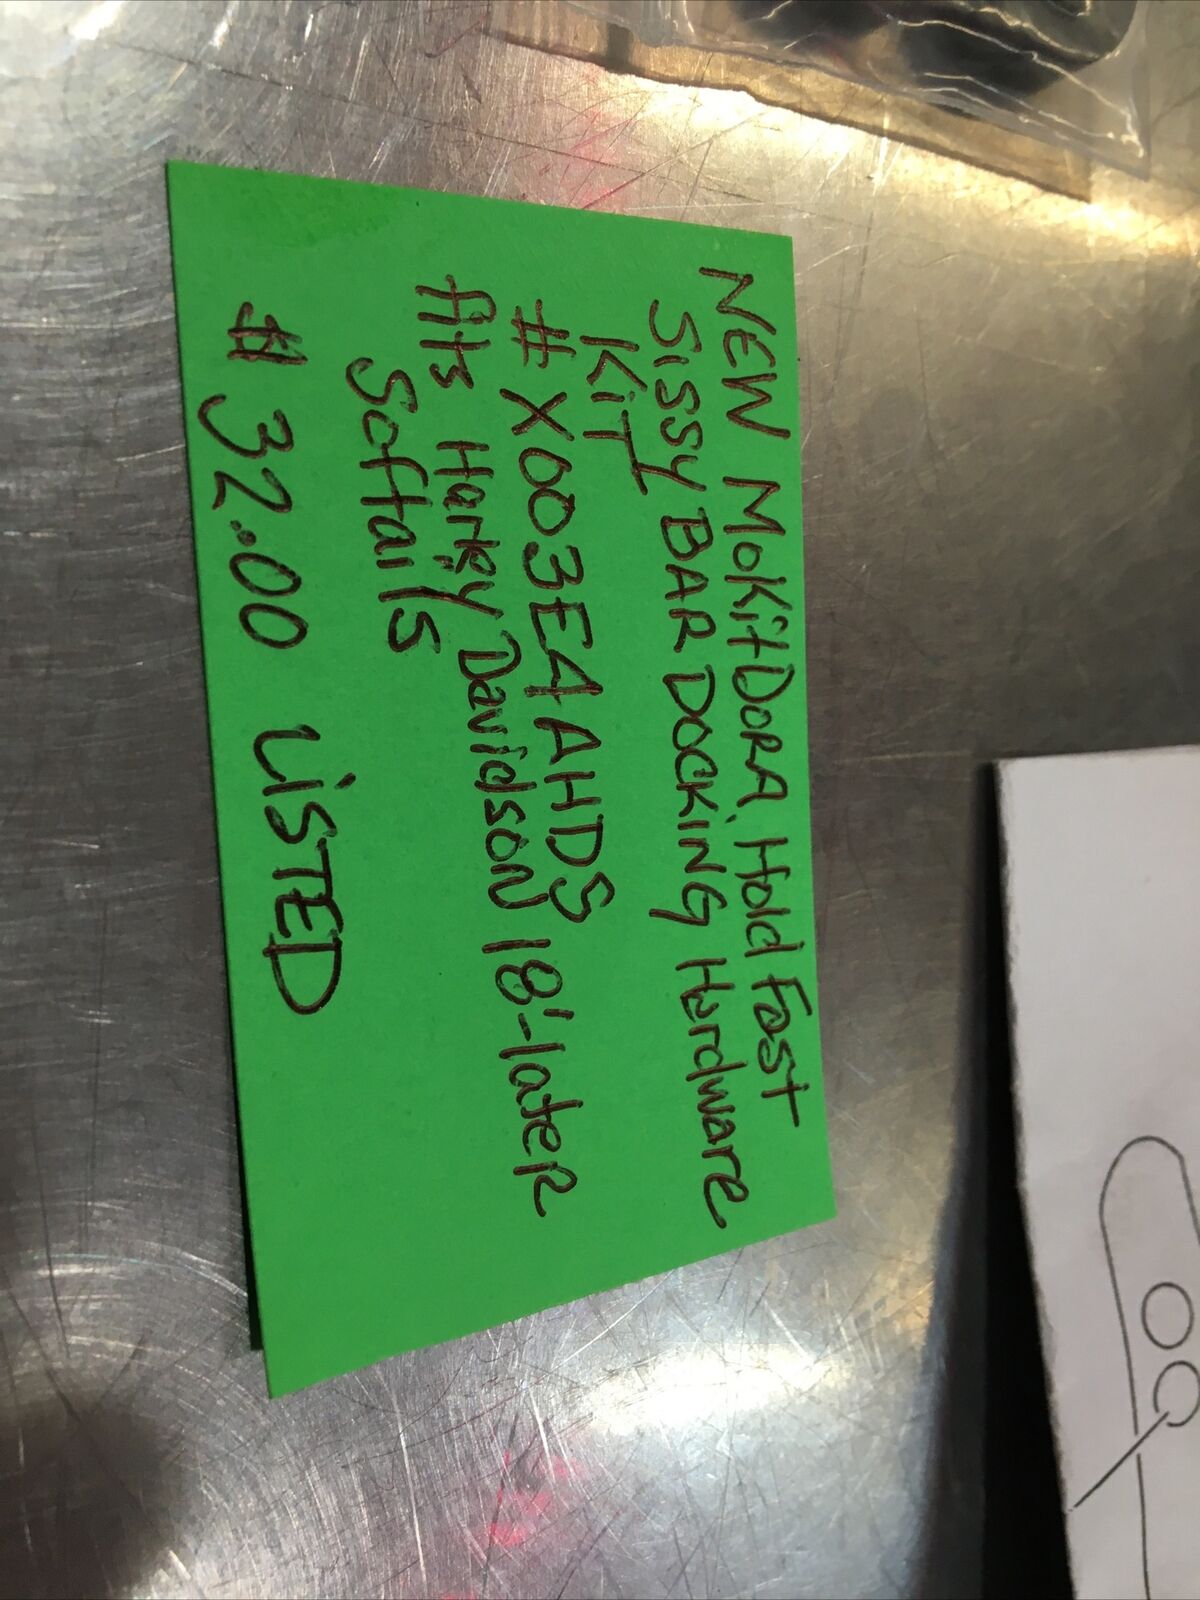 NEW MoKitDORA Hold Fast
SiSSY BAR DOCKiNG Hardware
KiT
# X003E4AHDS
fits Harley Davidson 18'-lateR
Softails
# 32.00 LiSTED